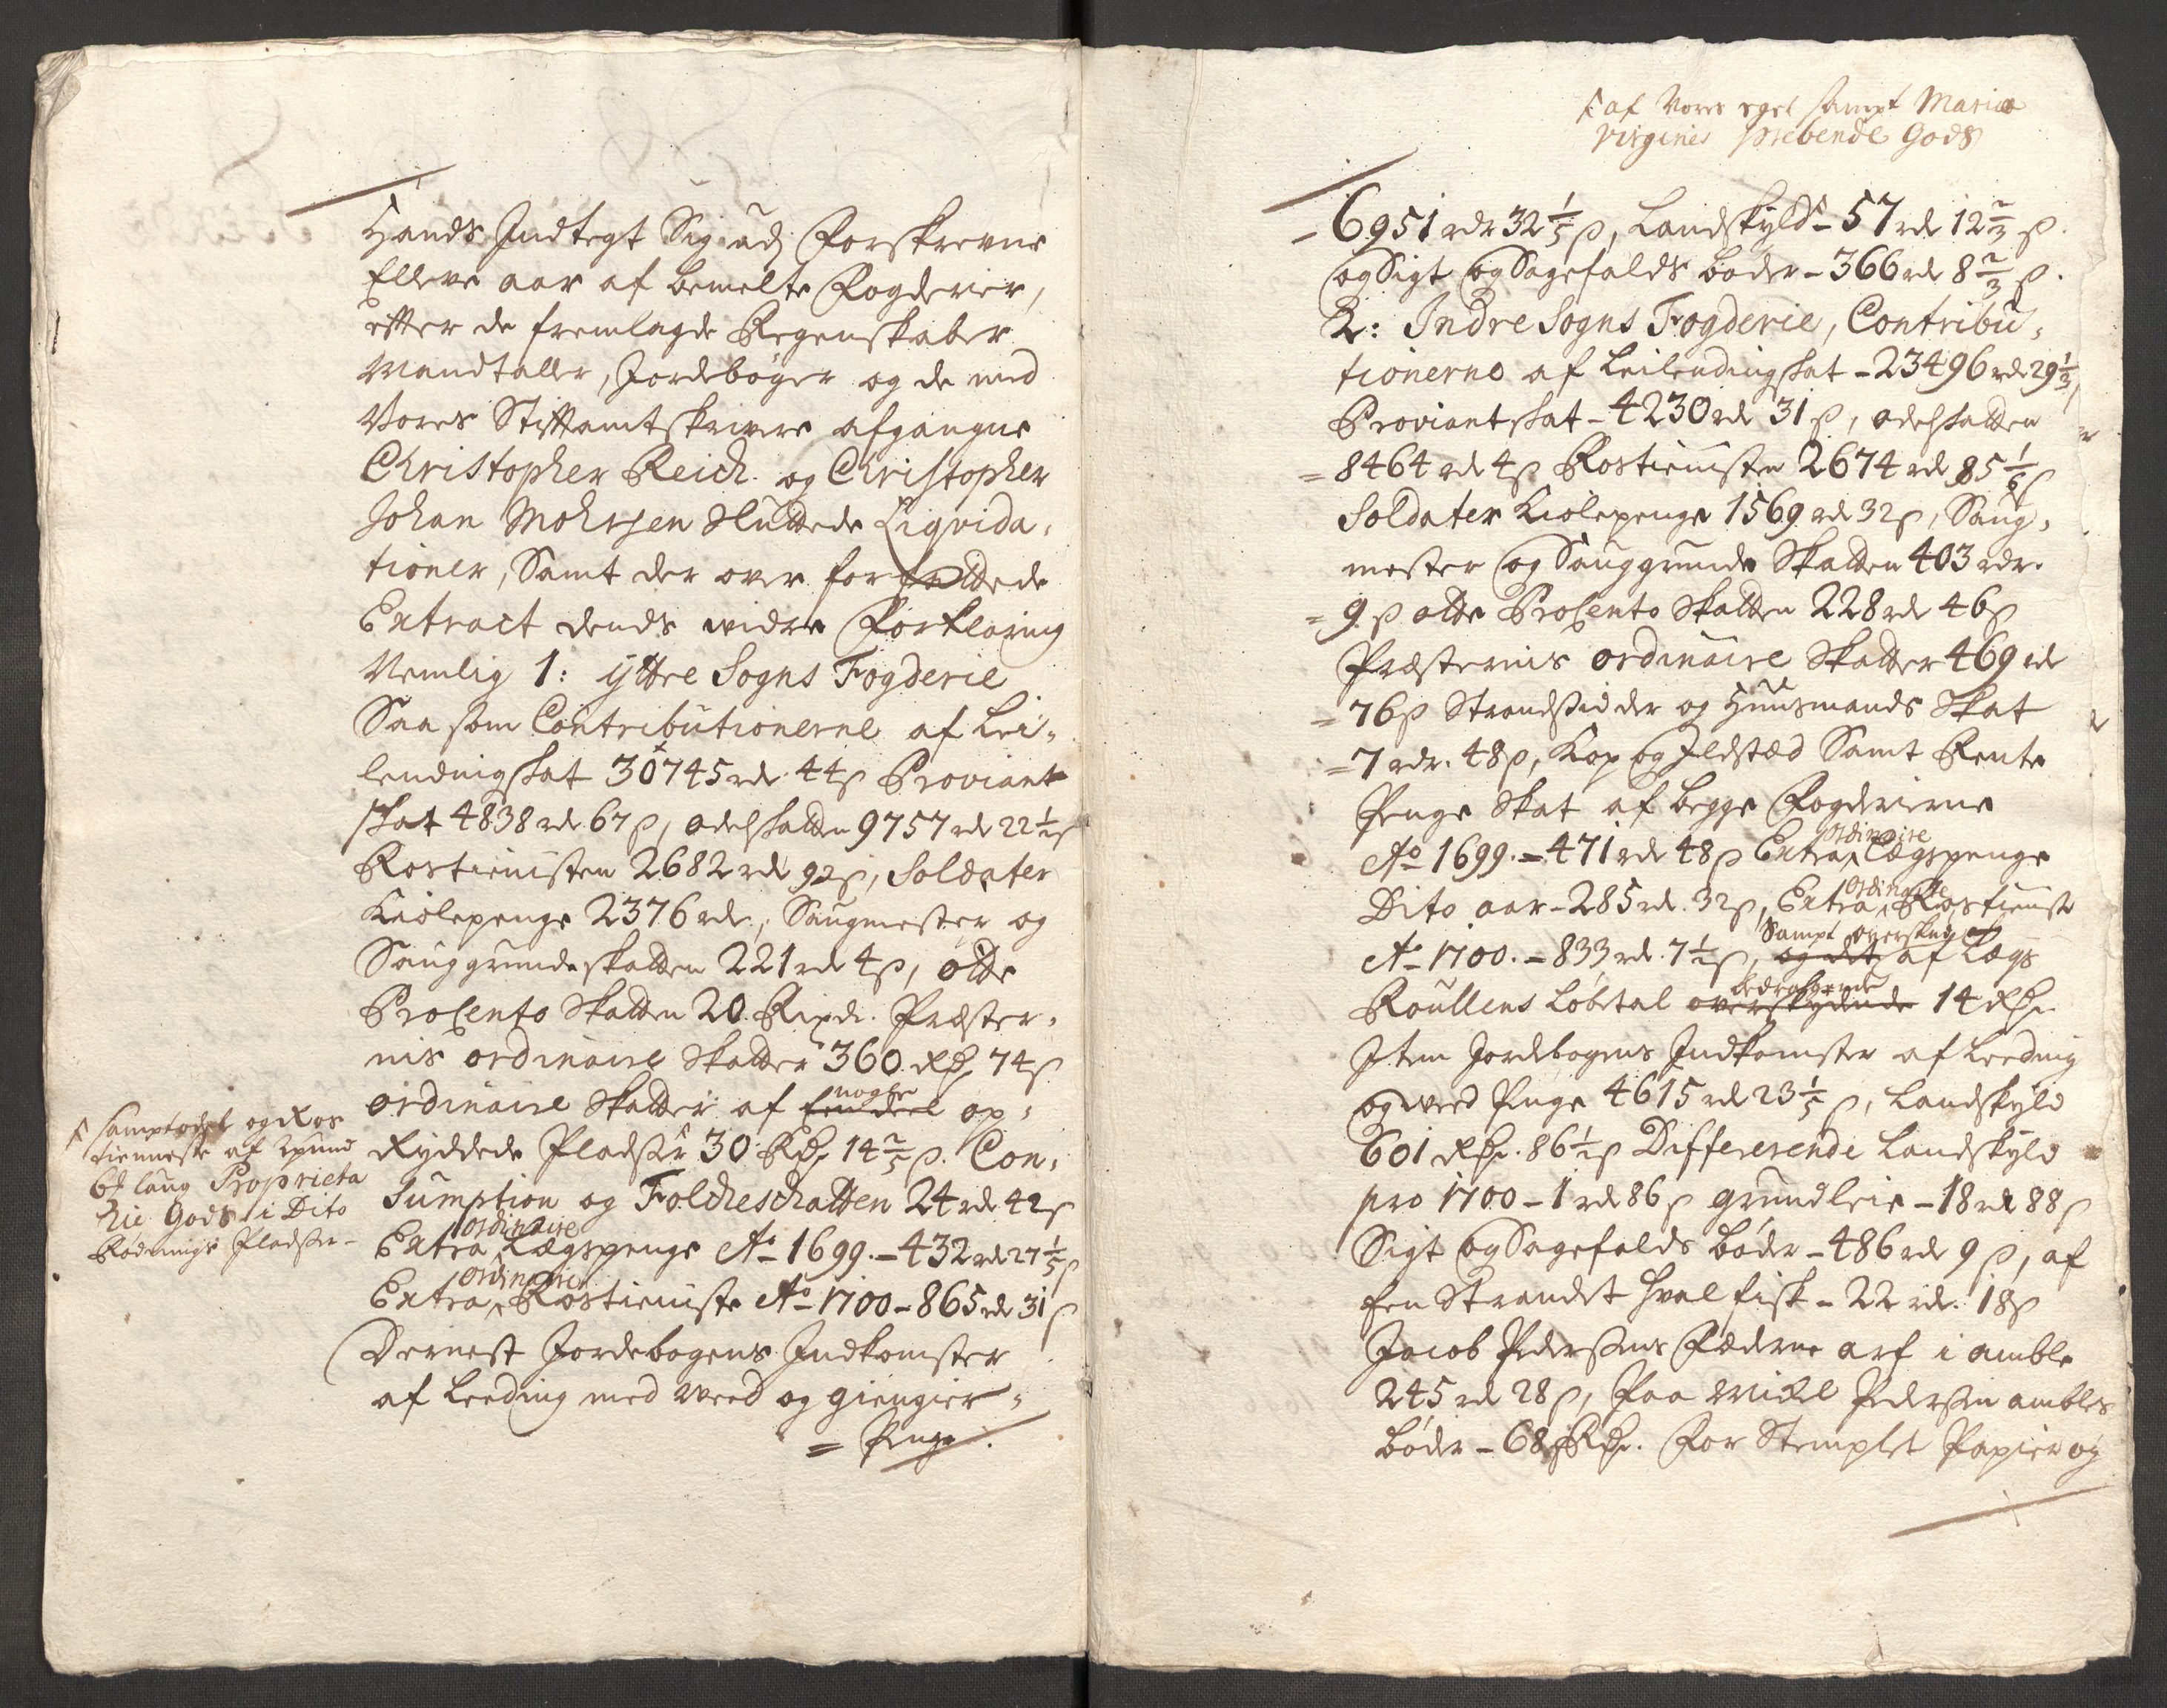 Hands Indtegt Sig udj Forskrevne
Elleve aar af bemelte Fogderier,
efter de fremlagde Regenskaber
Mandtaller, Jordebøger og de med
Vores Stiftamtskrivere afgangne
Christopher Reich. og Christopher
Johan Mohrsen Sluttede Liqvida-
tioner, Samt der over forfattede
Extract dends widre Forklaring
Nemlig 1: Yttre Sogns Fogderie
Saa som Contributionerne af Lei-
lendingskat 30745 rdr. 44 s Proviant
skat 4838 rdr. 67 s, odelskatten 9757 rdr 22 1/2 s
Rostienisten 2682 rdr 92 s, Soldater
Kiolepenge 2376 rdr., Saugmester og
Sauggrundeskatten 221 rdr 4 s, otte
ProCento Skatten 20. Rixdr. Præster-
nis ordinaire Skatter 360. Rdr 74 s
ordinaire Skatter af een deel nogle op-
Ryddede Pladser 30 Rdr 14 2/5 s. Con-
sumption og Folcheschatten 24 rdr 42 s
Extra ordinaire Lægspenge Ao 1699. - 432 rdr 27 1/5 s
Extra ordinaire Rostieniste Ao 1700 - 865 rdr 31 s
Dernest Jordebogens Indkomster
af Leeding med weed og giengier-
= Penge.
samptodel og Ros
tienneste af 2 pund
6 laug Proprieta
rie Gods i Dito
Rødnings Pladser -
af Vores eget sampt Mariæ
Virginis Prebende Gods
- 6951 rdr 32 1/5 s, Landskyld - 57 rdr 12 2/3 s.
og Sigt og Sagefalds bøder - 366 rdr 8 2/3 s.
2: Indre Sogns Fogderie, Contribu-
tionerne af Leilendingskat - 23496 rdr 29 1/3,
Proviantskat - 4230 rdr 31 s, odelskatten
= 8464 rdr 4 s Rostienisten 2674 rdr 85 1/6 s
Soldater Kiolepenge 1569 rdr 32 s, Saug-
mester og Sauggrunde Skatten 403 rdr.
= 9 s otte ProCento Skatten 228 rdr 46 s
Præsternis ordinaire Skatter 469 rdr
= 76 s Strandsidder og Huusmands Skat
= 7 rdr. 48 s, Kop og Ildstæd Samt Rente
Penge Skat af begge Fogderierne
Ao 1699. - 471 rdr 48 s Extra ordinaire Lægspenge
Dito aar - 285 rdr. 32 s, Extra ordinaire Rostieniste
Ao 1700. - 833 rdr. 7 1/2 s, og det Sampt overskud af Lægs
Roullens Løbetal overskydende bedragende 14 Rdr
Item Jordebogens Indkomster af Leeding
og weed Penge 4615 rdr 23 1/5 s, Landskyld
601 Rdr. 86 1/2 s Differerende Landskyld
pro 1700 - 1 rdr 86 s grundleie - 18 rdr 88 s
Sigt og Sagefalds bøder - 486 rdr 9 s, af
een Strandet Hval fisk - 22 rdr. 18 s
Jacob Pedersens Fæderne arf i amble
245 rdr 28 s, Paa Mickel Pedersen ambles
bøder - 68 Rdr. For Stemplet Papier og